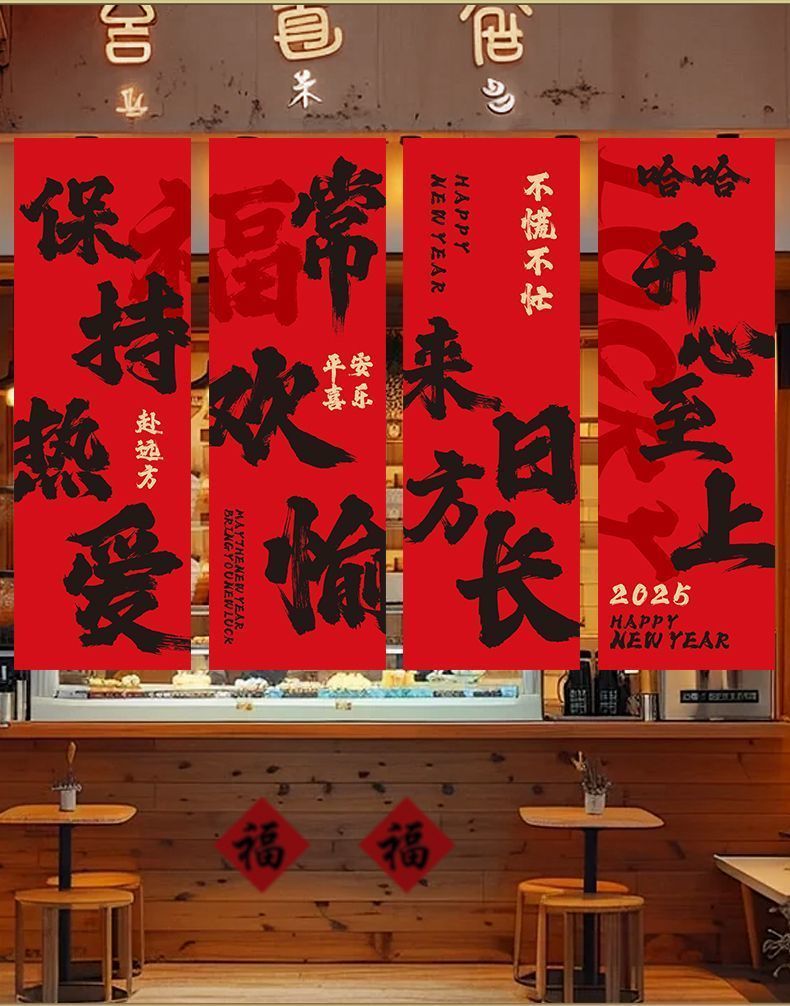 保持热爱
福
赴远方
常欢愉
福
平安喜乐
MAY THE NEW YEAR
BRING YOU NEW LUCK
HAPPY
NEW YEAR
不慌不忙
来日方长
哈哈
开心至上
LUCKY
2025
HAPPY
NEW YEAR
福
福